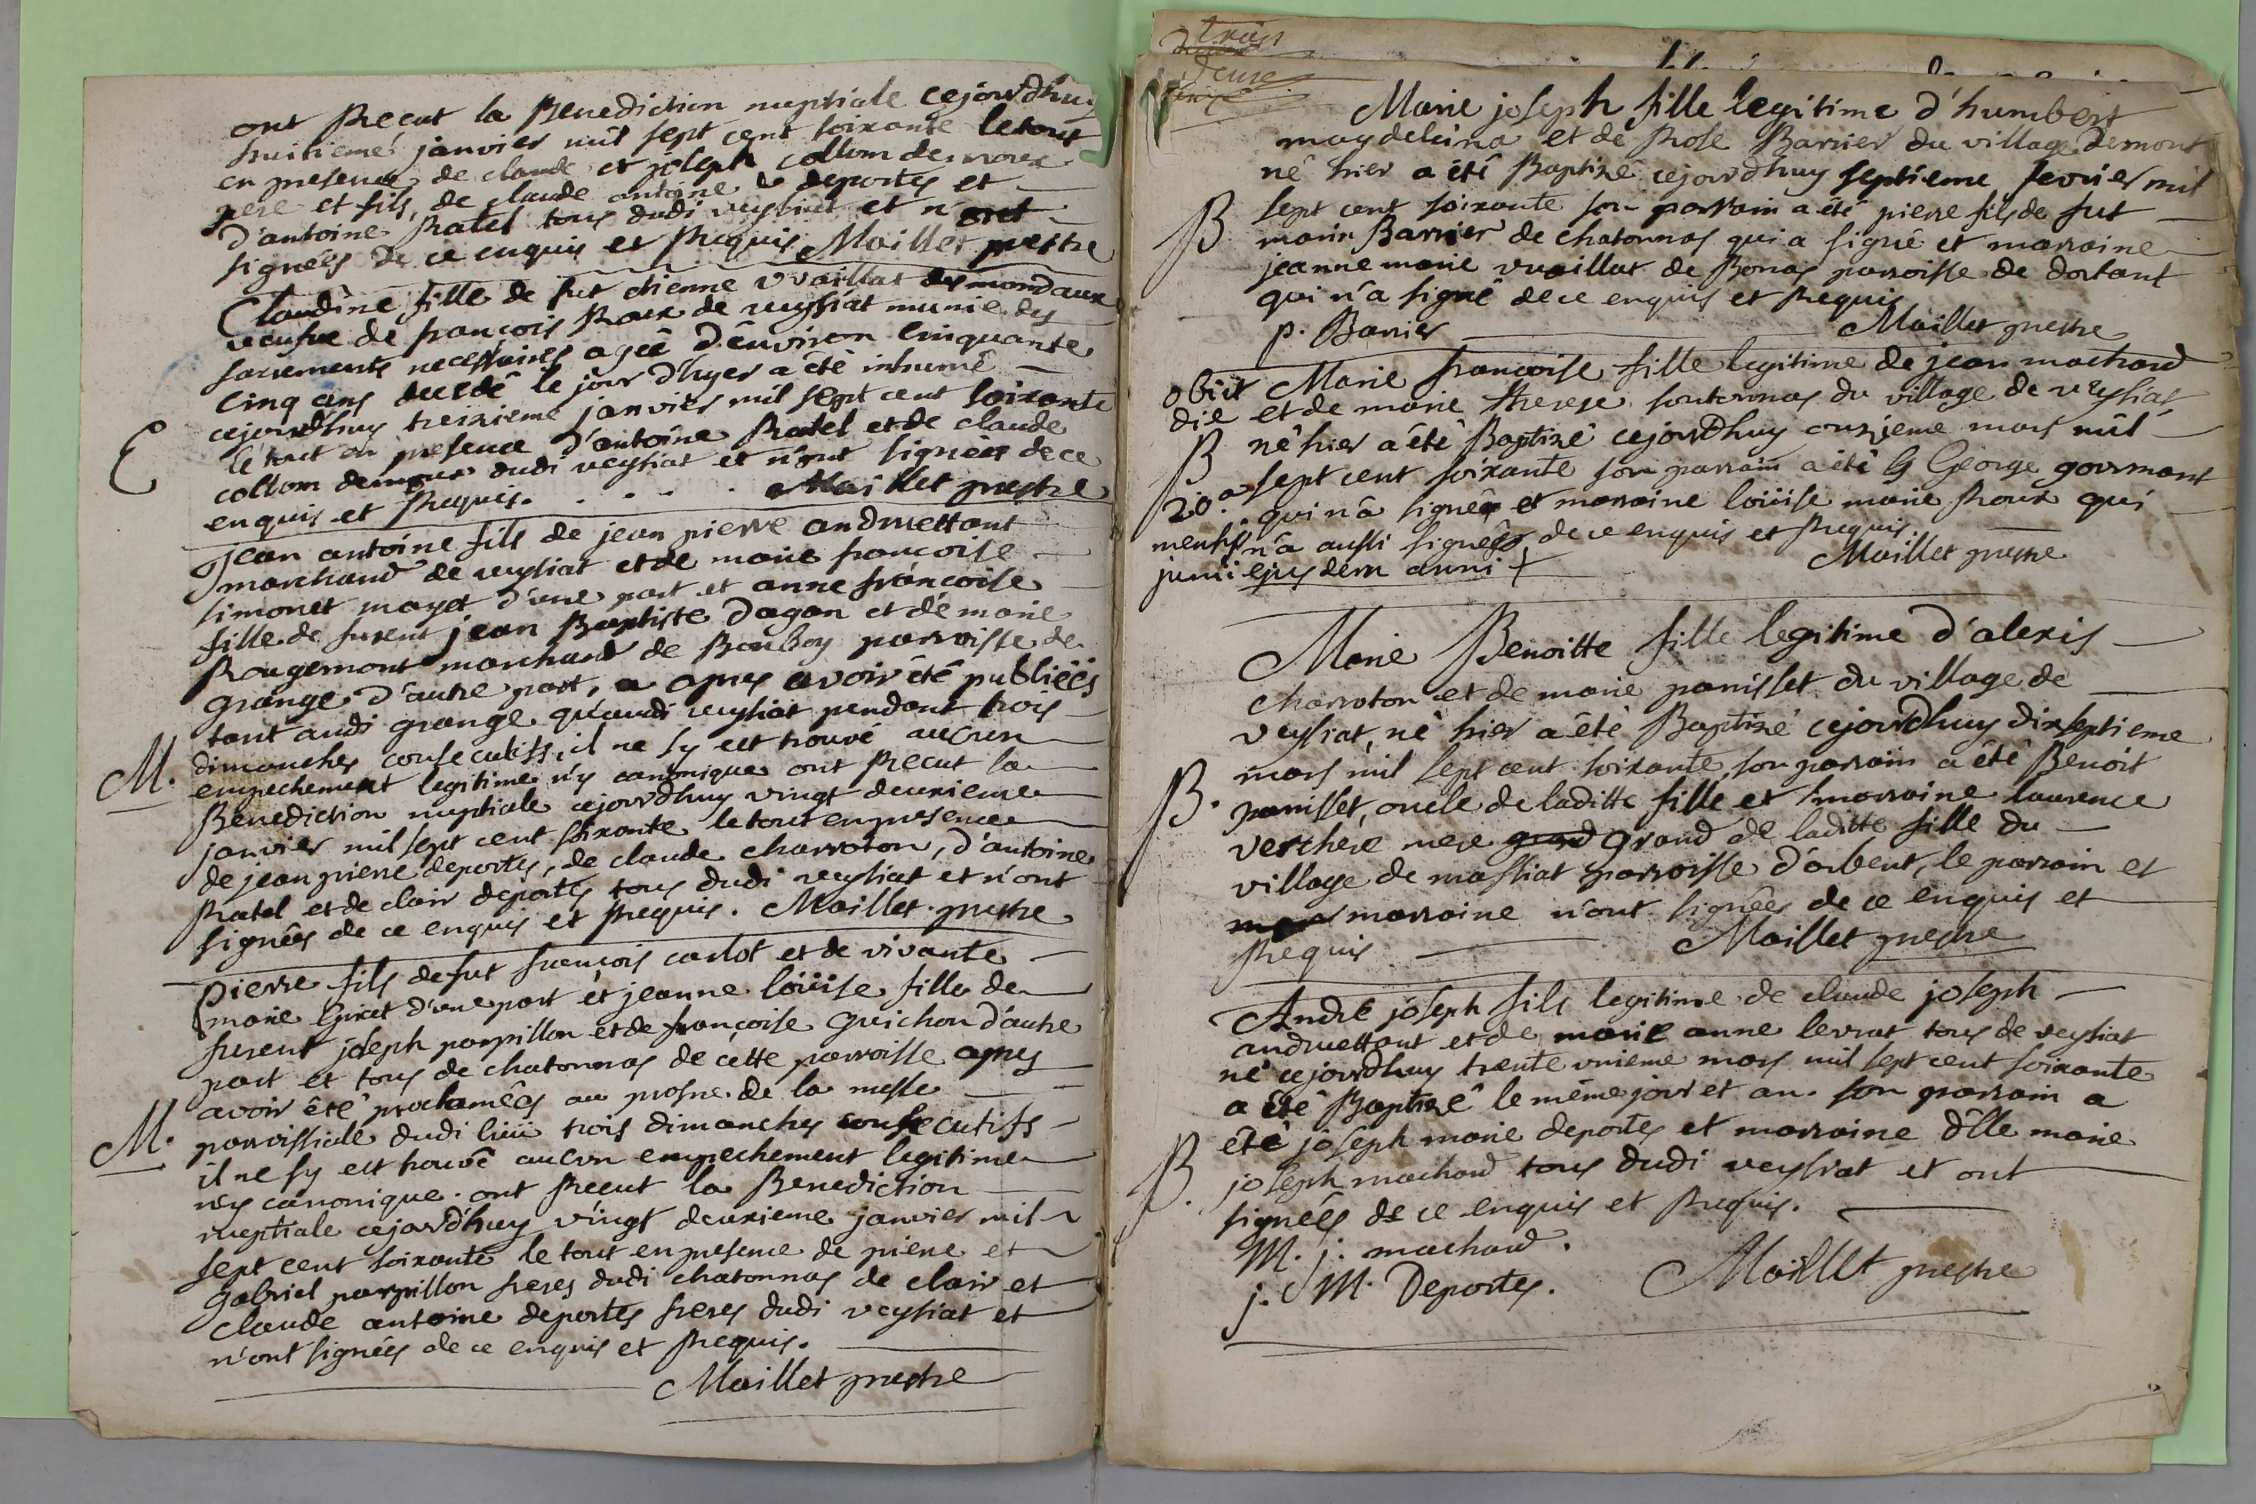 ont Reçut la Benediction nuptiale cejourdhuy
huitieme janvier mil sept cent soixante letout
en presence de claude et joseph collom demoux
pere et fils, de claude antoine de deportes et
d'antoine Ratel tous dudi veysiat et n'ont
signées de ce enquis et Requis. Maillet prestre
Claudine fille de fut etienne vvaillat des mondaux
veufve de françois Roux de veysiat munie des
sacrements necessaires agée d'environ Cinquante
Cinq ans decedé le jour d'hyer a été inhumé
cejourdhuy treizieme janvier mil sept cent soixante
E
le tout en presence d'antoine Ratel et de claude
collom demoux dudi veysiat et n'ont signées de ce
enquis et Requis. Maillet prestre
Jean antoine fils de jean pierre andruettant
marchand de veysiat et de marie françoise
simonet mayet d'une part et anne françoise
fille de furent jean Baptiste dagan et de marie
Rougemont marchand de Bouboy parroisse de
grange d'autre part, a apres avoir été publiées
tant audi grange qu'audi veysiat pendant trois
M. dimanches consecutifs, il ne sy est trouvé aucun
empechement legitime n'y canonique ont Recut la
Benediction nuptiale cejourdhuy vingt deuxieme
janvier mil sept cent soixante letout en presence
de jean pierre deportes, de claude charroton, d'antoine
Ratel et de clair deportes tous dudi veysiat et n'ont
signées de ce enquis et Requis. Maillet prestre
Pierre fils de fut françois carlot et de vivante
marie Girat d'une part et jeanne loüise fille de
furent joseph parpillon et de françoise Guichon d'autre
part et tous de chatonnas de cette parroisse apres
avoir été proclamées au prosne de la messe
M. parroissiale dudi lieü trois dimanches consecutifs
il ne sy est trouvé aucun empechement legitime
n'y canonique. ont Recut la Benediction
nuptiale cejourd'huy vingt deuxieme janvier mil
sept cent soixante le tout en presence de pierre et
Gabriel parpillon freres dudi chatonnas de clair et
claude antoine deportes freres dudi veysiat et
n'ont signées de ce enquis et Requis.
Maillet prestre
trois
deuxe
Marie joseph fille legitime d'humbert
magdeleina et de Rose Barrier du village demont
né hier a été Baptizé cejourdhuy septieme fevrier mil
B sept cent soixante son parrain a été pierre fils de fut
marin Barrier de chatonnas qui a signé et marraine
jeanne marie vvaillat de Bonas parroisse de dortant
qui n'a signé de ce enquis et Requis
p. Barrier Maillet prestre
obiit Marie françoise fille legitime de jean machard
die et de marie therese soutonnas du village de veysiat
B né hier a été Baptizé cejourdhuy onzieme mars mil
20.a sept cent soixante son parrain a été George gourmant
qui n'a signée et marraine loüise marie Roux qui
mensis n'a aussi signée, de ce enquis et Requis.
junii ejusdem anni Maillet prestre
Marie Benoitte fille legitime d'alexis
charroton et de marie panisset du village de
veysiat, né hier a été Baptizé cejourdhuy dixseptieme
mars mil sept cent soixante, son parrain a été Benoit
B. panisset, oncle de laditte fille et marraine laurence
verchere mere grand grand de laditte fille du
village de massiat parroisse d'arbent, le parrain et
mar marraine n'ont signées de ce enquis et
Requis Maillet prestre
André joseph fils legitime de claude joseph
andruettant et de marie anne levrat tous de veysiat
né cejourdhuy trente unieme mars mil sept cent soixante
a été Baptizé le même jour et an. son parrain a
été joseph marie deportes et marraine d'lle marie
B. joseph machard tous dudi veysiat et ont
signées de ce enquis et Requis.
M. j. machard.
j. M. Deportes. Maillet prestre